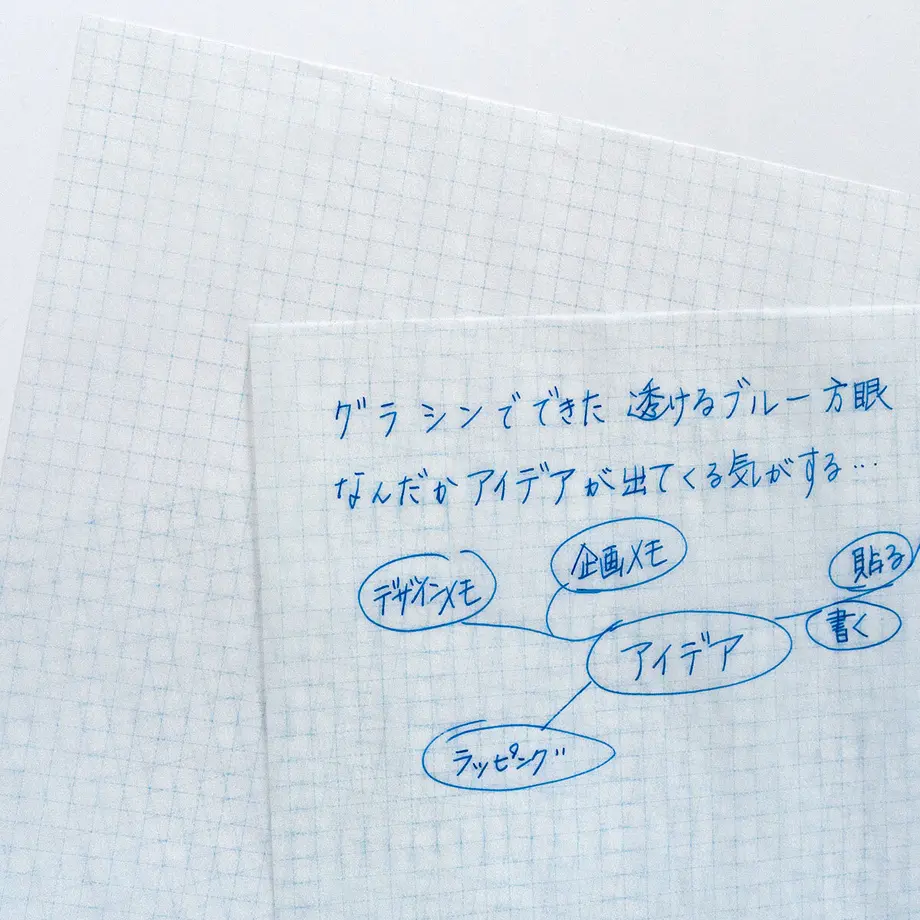 グラシンでできた 透けるブルー方眼
なんだかアイデアが出てくる気がする…
企画メモ
デザインメモ
貼る
書く
アイデア
ラッピング